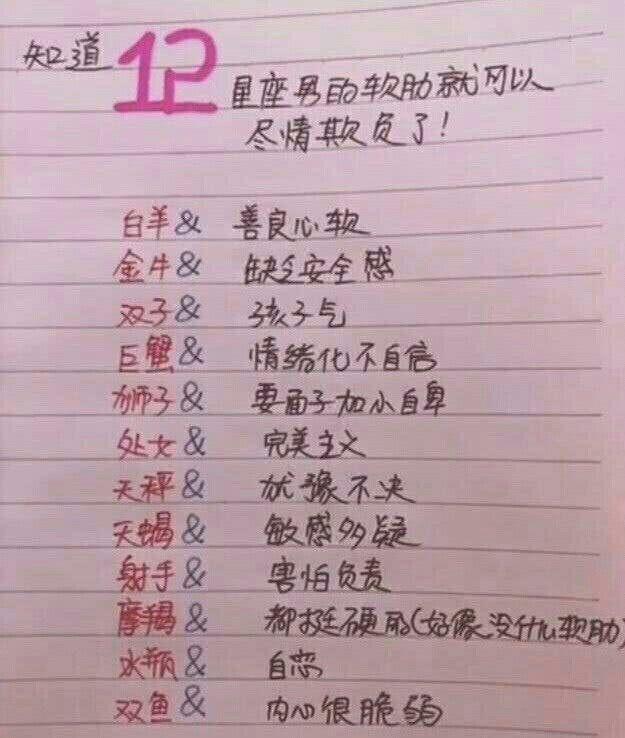 知道12星座男的软肋就可以
尽情欺负了!
白羊& 善良心软
金牛& 缺乏安全感
双子& 孩子气
巨蟹& 情绪化不自信
狮子& 要面子加小自卑
处女& 完美主义
天秤& 犹豫不决
天蝎& 敏感多疑
射手& 害怕负责
摩羯& 都挺硬的(好像没什么软肋)
水瓶& 自恋
双鱼& 内心很脆弱